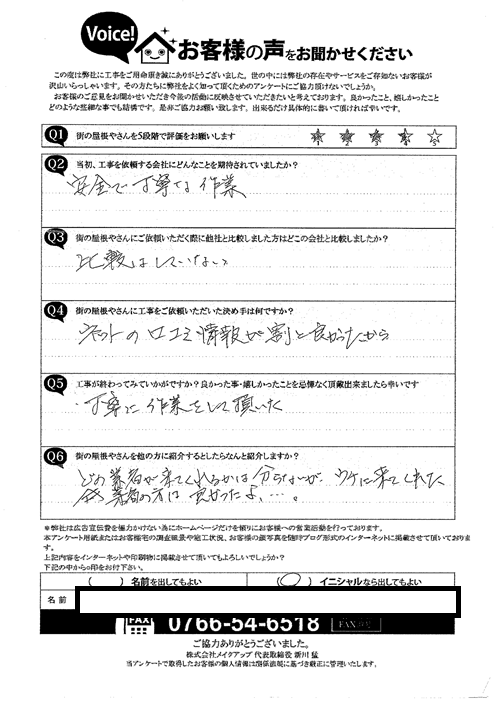 Voice!
お客様の声をお聞かせください
この度は弊社に工事をご用命頂き誠にありがとうございました。世の中には弊社の存在やサービスをご存知ないお客様が
沢山いらっしゃいます。そんな方たちに弊社をよく知って頂くためのアンケートにご協力頂けないでしょうか。
お客様のご意見をお聞かせいただき今後の活動に反映させていただきたいと考えております。良かったこと、嬉しかったこと
どのような些細な事でも結構です。是非ご協力お願い致します。出来るだけ具体的に書いて頂ければ幸いです。
Q1 街の屋根やさんを5段階で評価をお願いします
Q2 当初、工事を依頼する会社にどんなことを期待されていましたか?
安全で丁寧な作業
Q3 街の屋根やさんにご依頼いただく際に他社と比較しました方はどこの会社と比較しましたか?
比較はしていない
Q4 街の屋根やさんに工事をご依頼いただいた決め手は何ですか?
ネットの口コミ情報が割と良かったから
Q5 工事が終わってみていかがですか?良かった事・嬉しかったことを忌憚なく頂戴出来ましたら幸いです
・丁寧に作業をして頂いた
Q6 街の屋根やさんを他の方に紹介するとしたらなんと紹介しますか?
どの業者が来てくれるかは分らないが、ウチに来てくれた
業者の方は良かったよ、…。
※弊社は広告宣伝費を極力かけない為にホームページだけを頼りにお客様への営業活動を行っております。
本アンケート用紙またはお客様宅の調査風景や施工状況、お客様の顔写真を随時ブログ形式のインターネットに掲載させて頂いております。
上記内容をインターネットや印刷物に掲載させて頂いてもよろしいでしょうか?
下記の中から○印をお付下さい。
( ) 名前を出してもよい (○) イニシャルなら出してもよい
名前
FAX 0766-54-6518
ご協力ありがとうございました。
株式会社メイクアップ 代表取締役 新川 猛
当アンケートで取得したお客様の個人情報は関係法規に基づき厳正に管理いたします。